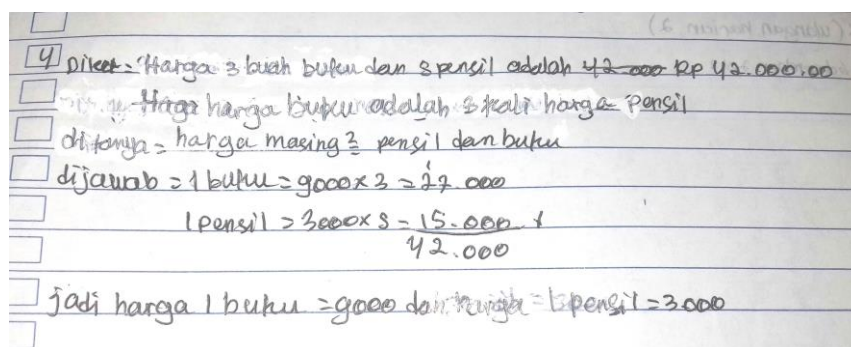 4 Diket = Harga 3 buah buku dan 5 pensil adalah 42.000 Rp 42.000.00
Haga harga buku adalah 3 kali harga pensil
ditanya = harga masing2 pensil dan buku
dijawab = 1 buku = 9000 x 3 = 27.000
1 pensil = 3000 x 5 = 15.000 +
42.000
jadi harga 1 buku = 9000 dan harga 1 pensil = 3.000